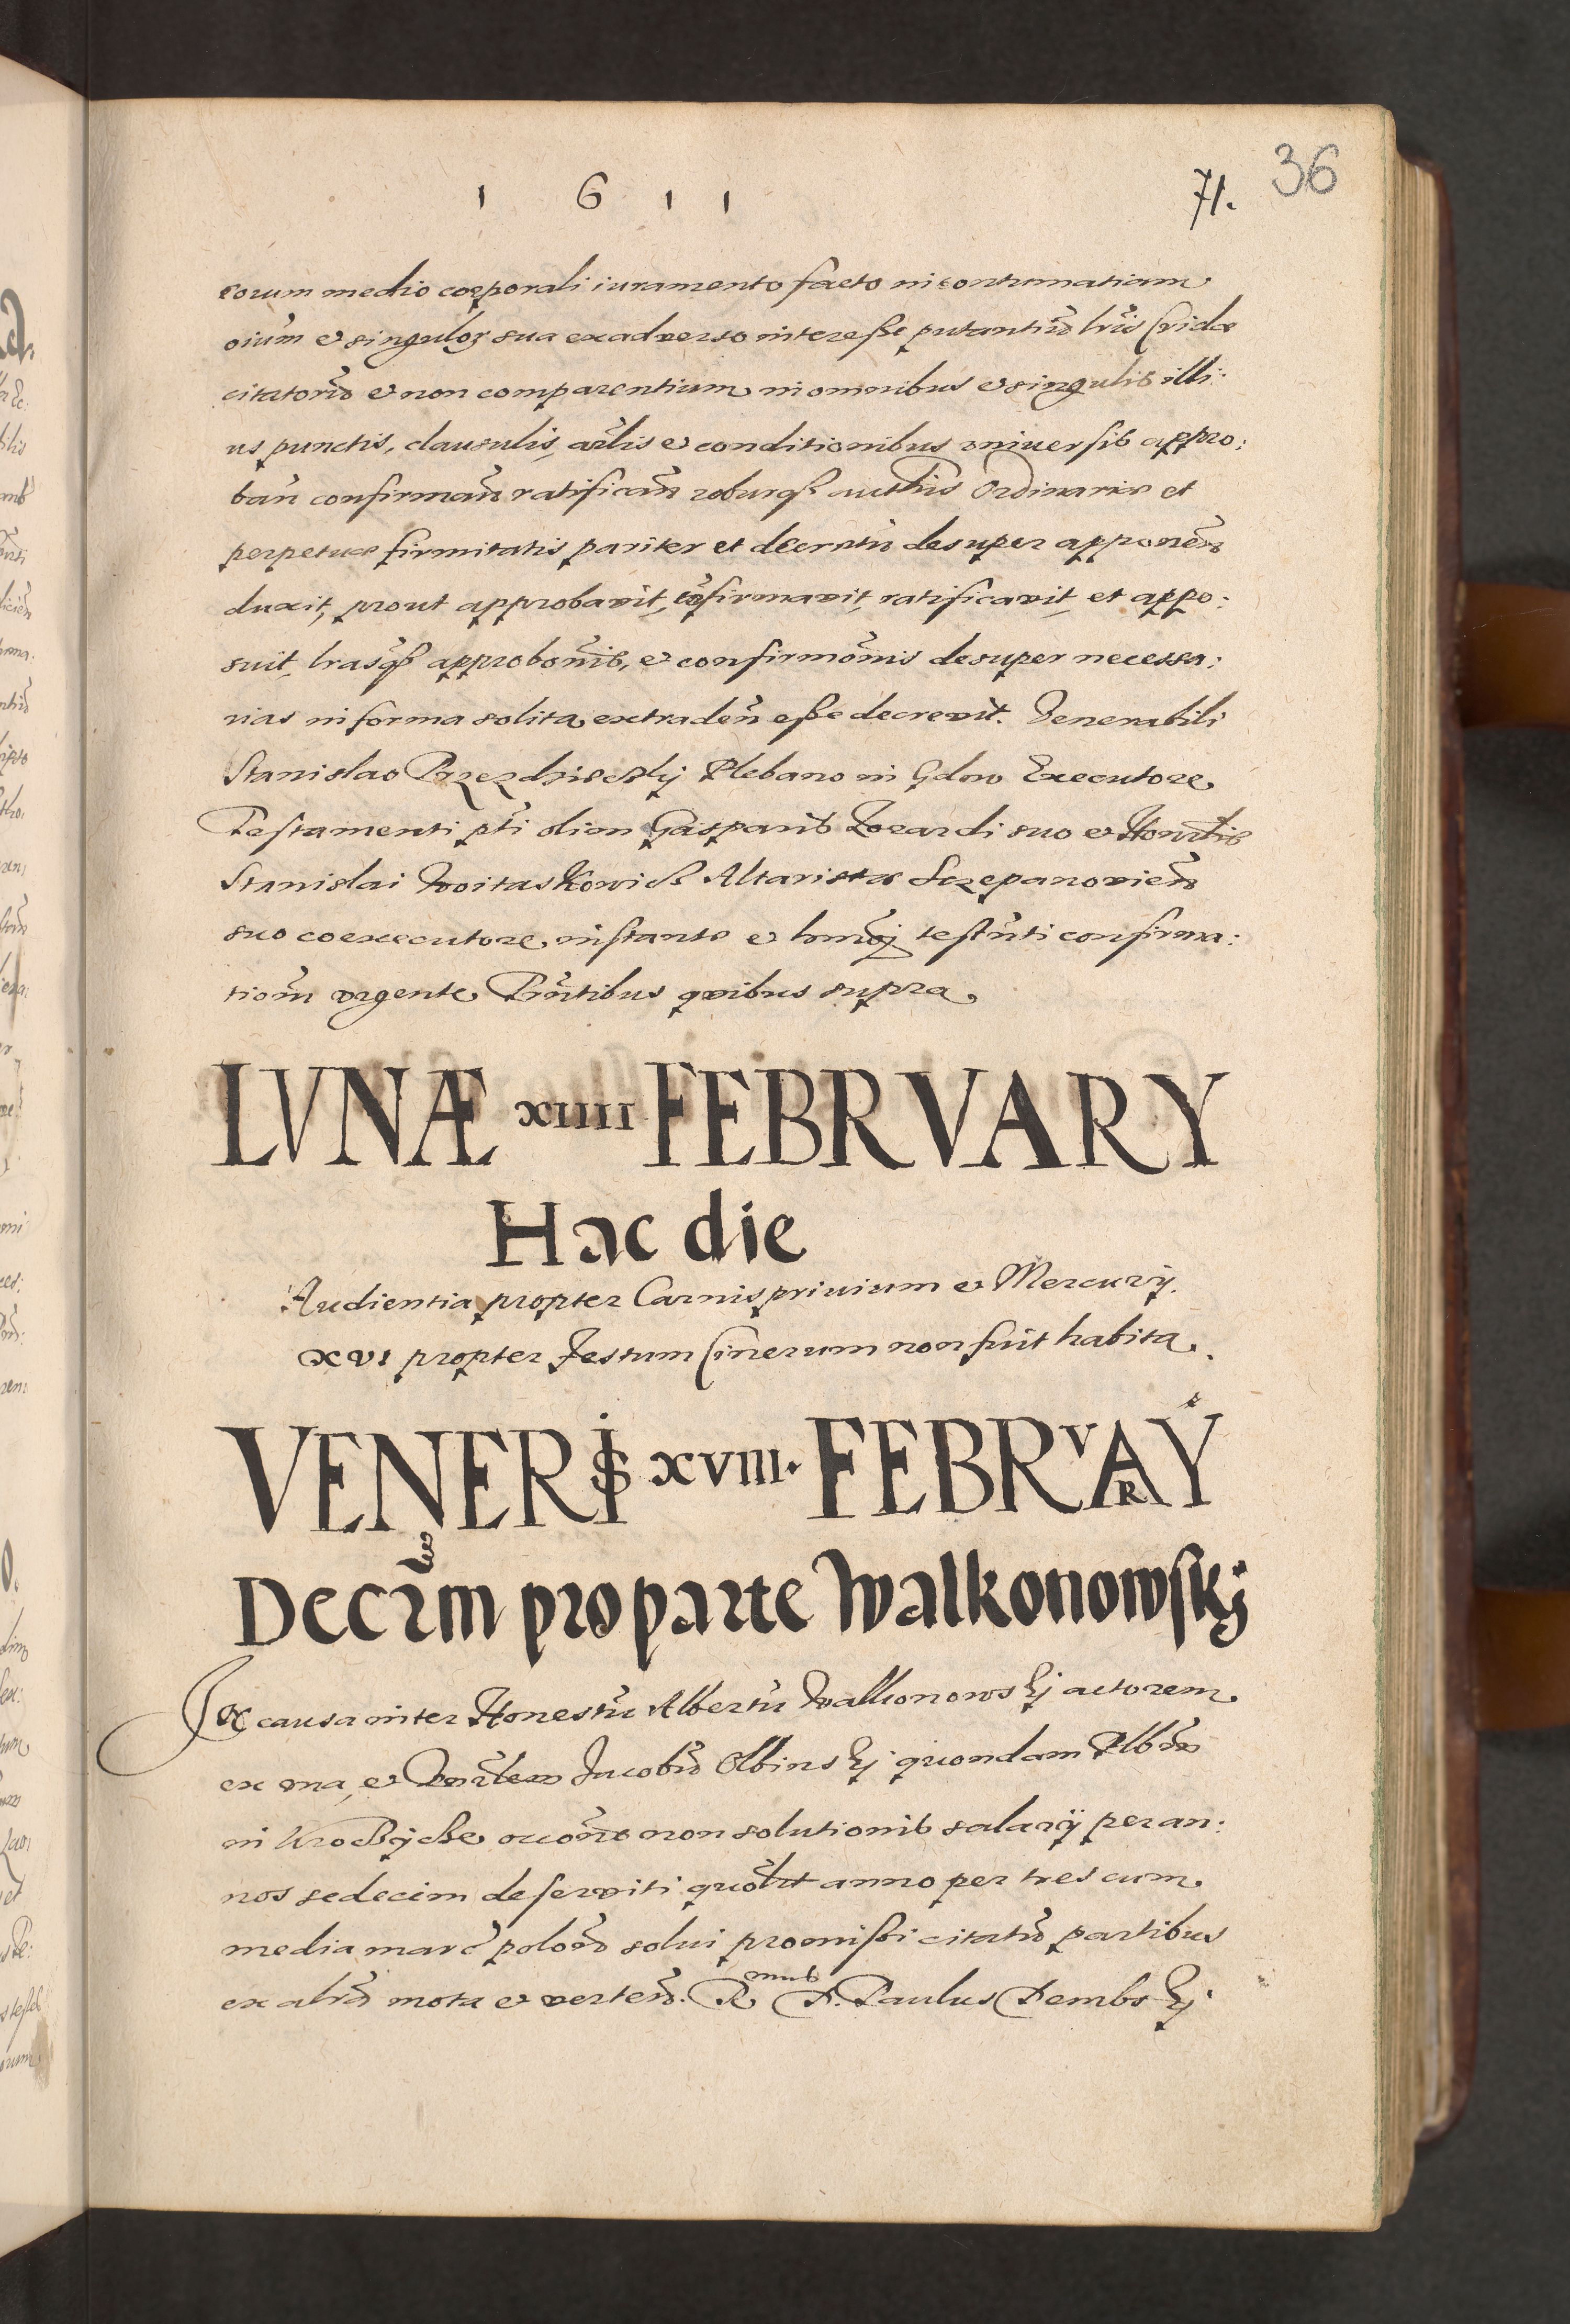 1 6 1 1
71. 36
eorum medio corporali iuramento facto in contumatiam
oium̃ et singuloꝝ sua ex adverso interesse putantiũ lr̃is Cridæ
citatorũ et non comparentium in omnibus et singulis illi:
us punctis, clausulis, artlis̃ et conditionibus vniversis appro:
ban̄ confirman̄ ratifican̄ roburqꝫ authtis Ordinariæ et
perpetuæ firmitatis pariter et decretũ desuper apponen̄
duxit, prout approbavit, cõfirmavit, ratificavit, et appo:
suit, lrasqꝫ̃ approbonĩs, et confirmonĩs desuper necessa:
rias in forma solita extraden̄ esse decrevit. Venerabili
Stanislao Przezdzieczkÿ Plebano in Gdow Executore
Testamenti pti olim Gasparis Zocardi suo et Honrblis
Stanislai Woitaskowicz Altaristæ Sczepanovien̄
suo coexecutore, instante et hmõi testm̃ti confirma:
tiom̃ vrgente Pñtibus quibus supra
LVNÆ XIIII FEBRVARY
Hac die
Audientia propter Carnisprivium et Mercurÿ
XVI propter Festum Cinerum non fuit habita.
VENERIS XVIII. FEBRVARY
Decrm̃ pro parte Walkonowskÿ
In causa inter Honestũ Albertũ Walkonowskÿ actorem
ex vna, et Vener̃lem Jacobũ Olbinskÿ quondam Plbñ
in Krocziÿcze occoñe non solutionis salarÿ per an:
nos sedecim deserviti quõlt anno per tres cum
media marč poloñ solui promissi citatũ partibus
ex altrã mota et verteñ. Rmus D. Paulus Dembskÿ